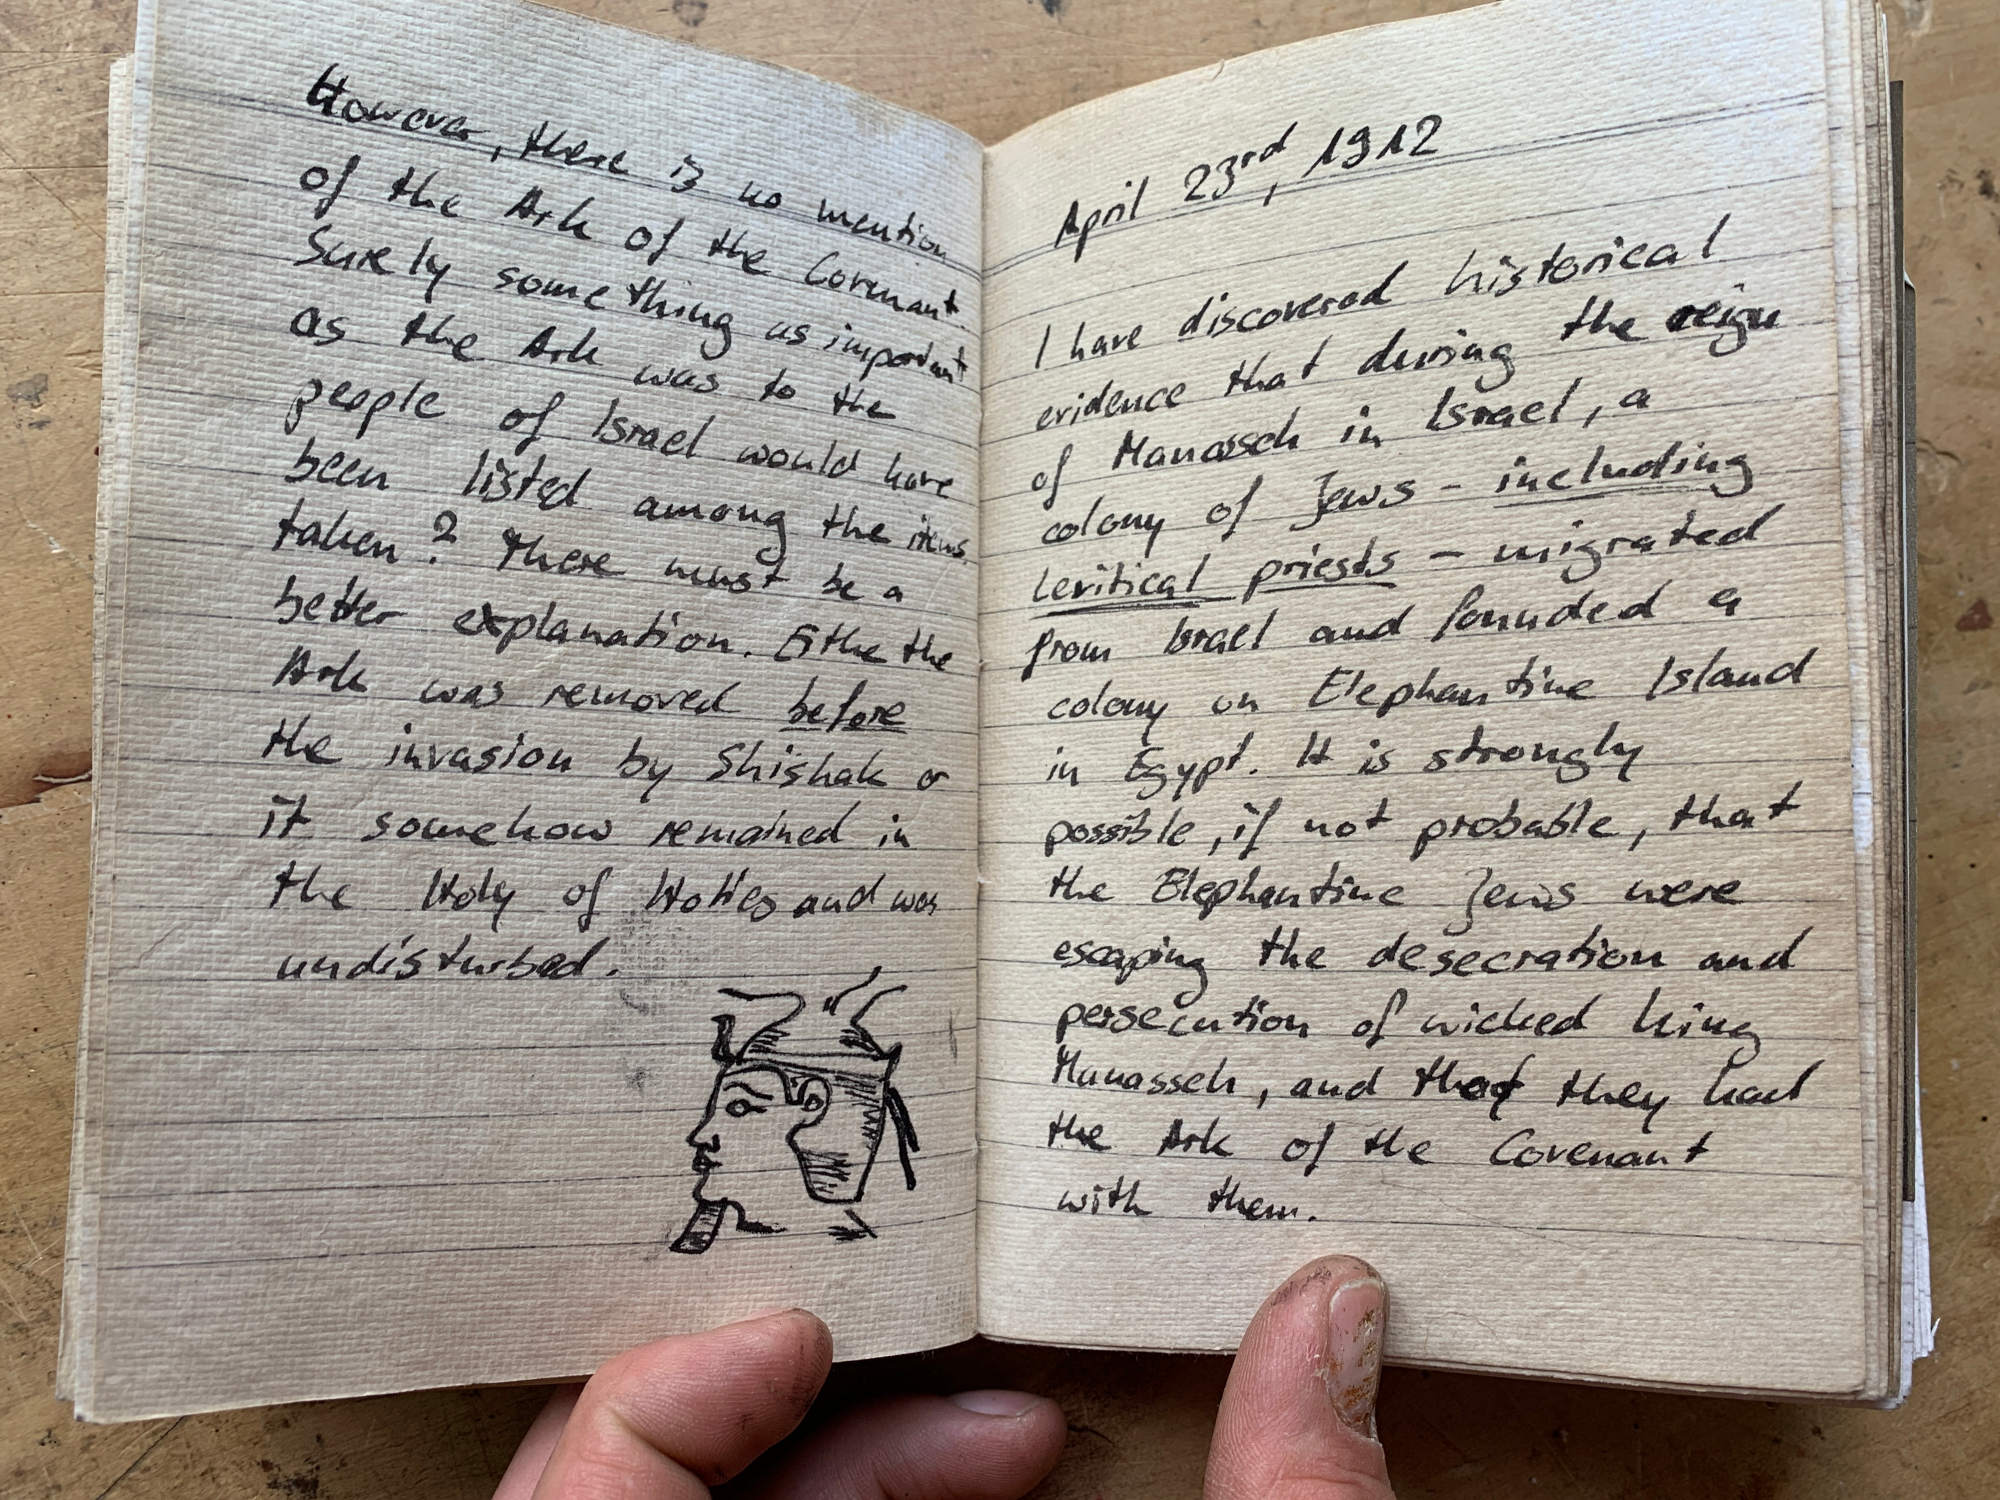 However, there is no mention
of the Ark of the Covenant.
Surely something as important
as the Ark was to the
people of Israel would have
been listed among the items
taken? There must be a
better explanation. Eithe the
Ark was removed before
the invasion by Shishak or
it somehow remained in
the Holy of Holies and was
undisturbed.
April 23rd, 1912
I have discovered historical
evidence that during the reign
of Manasseh in Israel, a
colony of Jews - including
levitical priests - migrated
from Israel and founded a
colony on Elephantine Island
in Egypt. It is strongly
possible, if not probable, that
the Elephantine Jews were
escaping the desecration and
persecution of wicked king
Manasseh, and that they had
the Ark of the Covenant
with them.